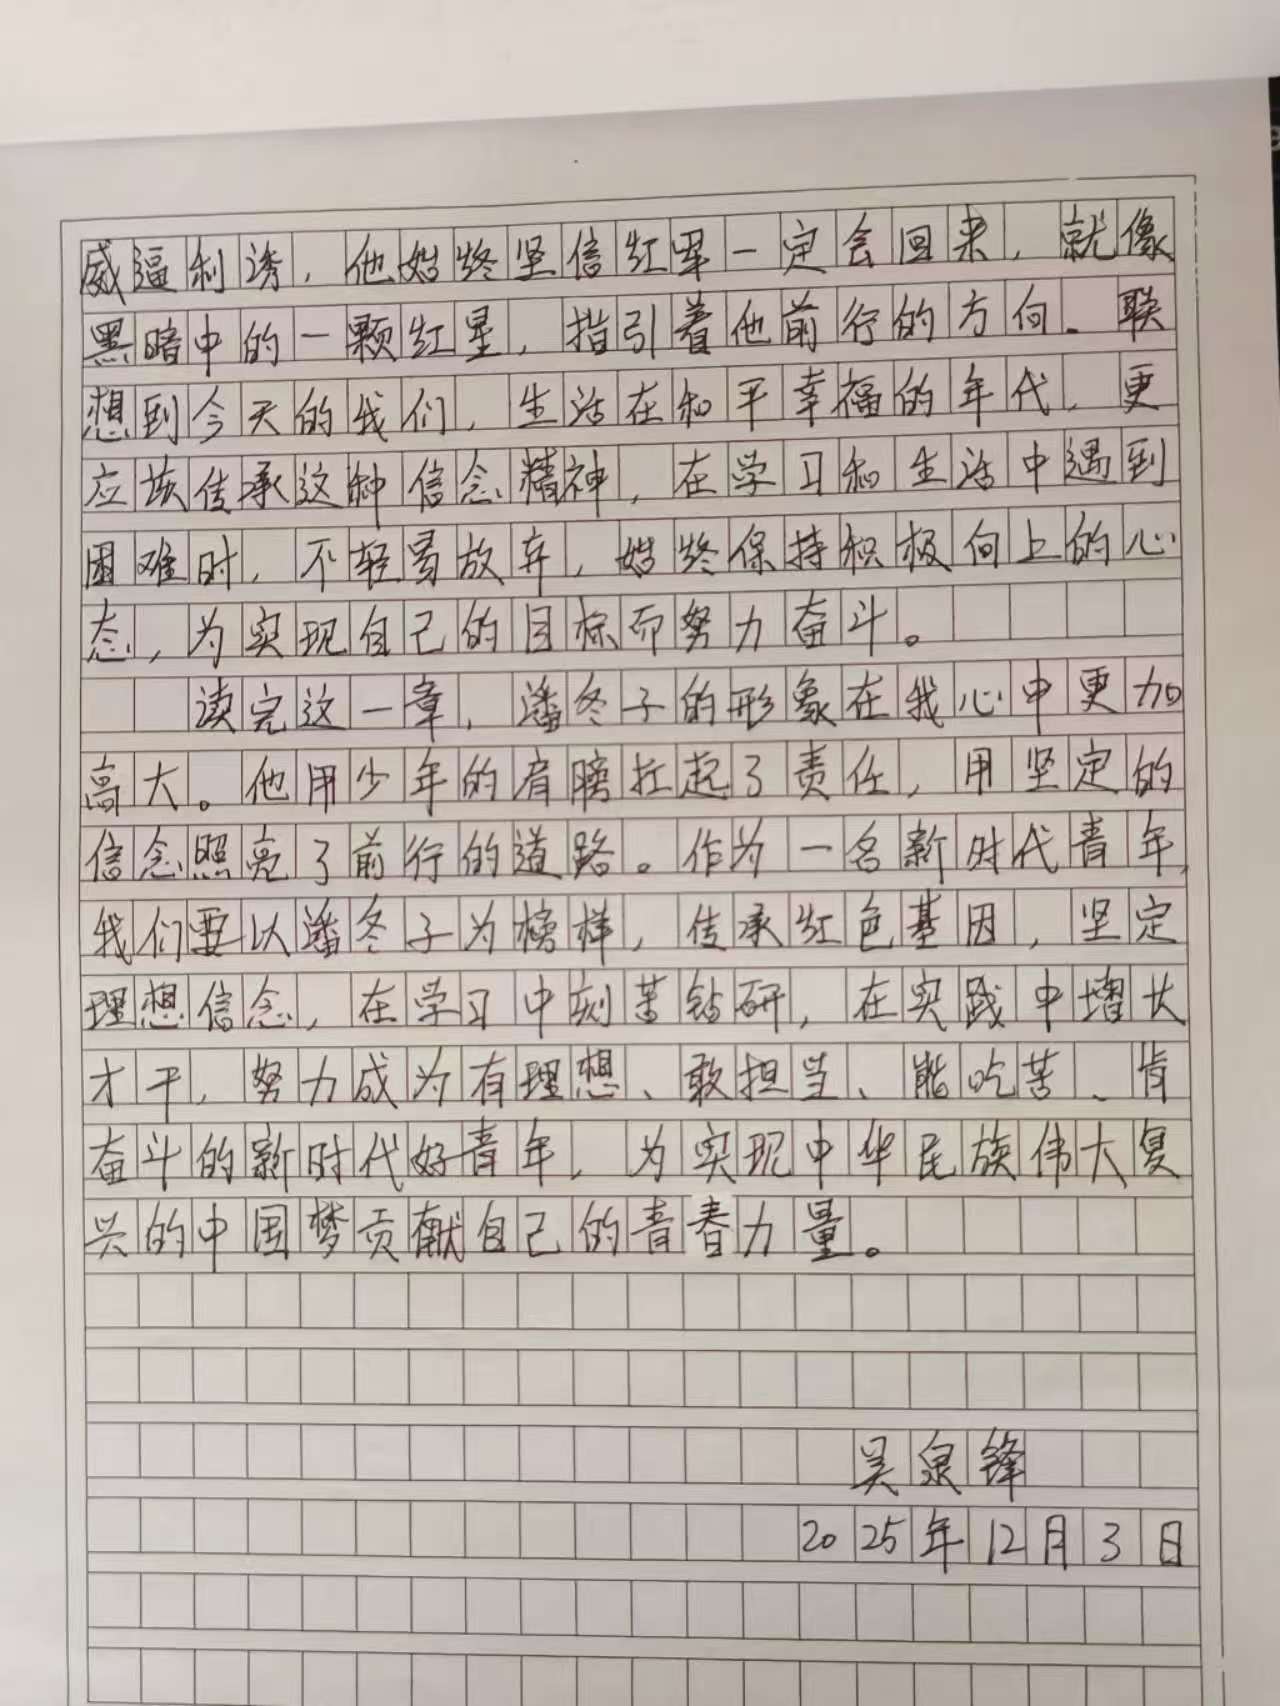 威逼利诱，他始终坚信红军一定会回来，就像
黑暗中的一颗红星，指引着他前行的方向。联
想到今天的我们，生活在和平幸福的年代，更
应该传承这种信念精神，在学习和生活中遇到
困难时，不轻易放弃，始终保持积极向上的心
态，为实现自己的目标而努力奋斗。
读完这一章，潘冬子的形象在我心中更加
高大。他用少年的肩膀扛起了责任，用坚定的
信念照亮了前行的道路。作为一名新时代青年，
我们要以潘冬子为榜样，传承红色基因，坚定
理想信念，在学习中刻苦钻研，在实践中增长
才干，努力成为有理想、敢担当、能吃苦、肯
奋斗的新时代好青年，为实现中华民族伟大复
兴的中国梦贡献自己的青春力量。
吴泉锋
2025年12月3日